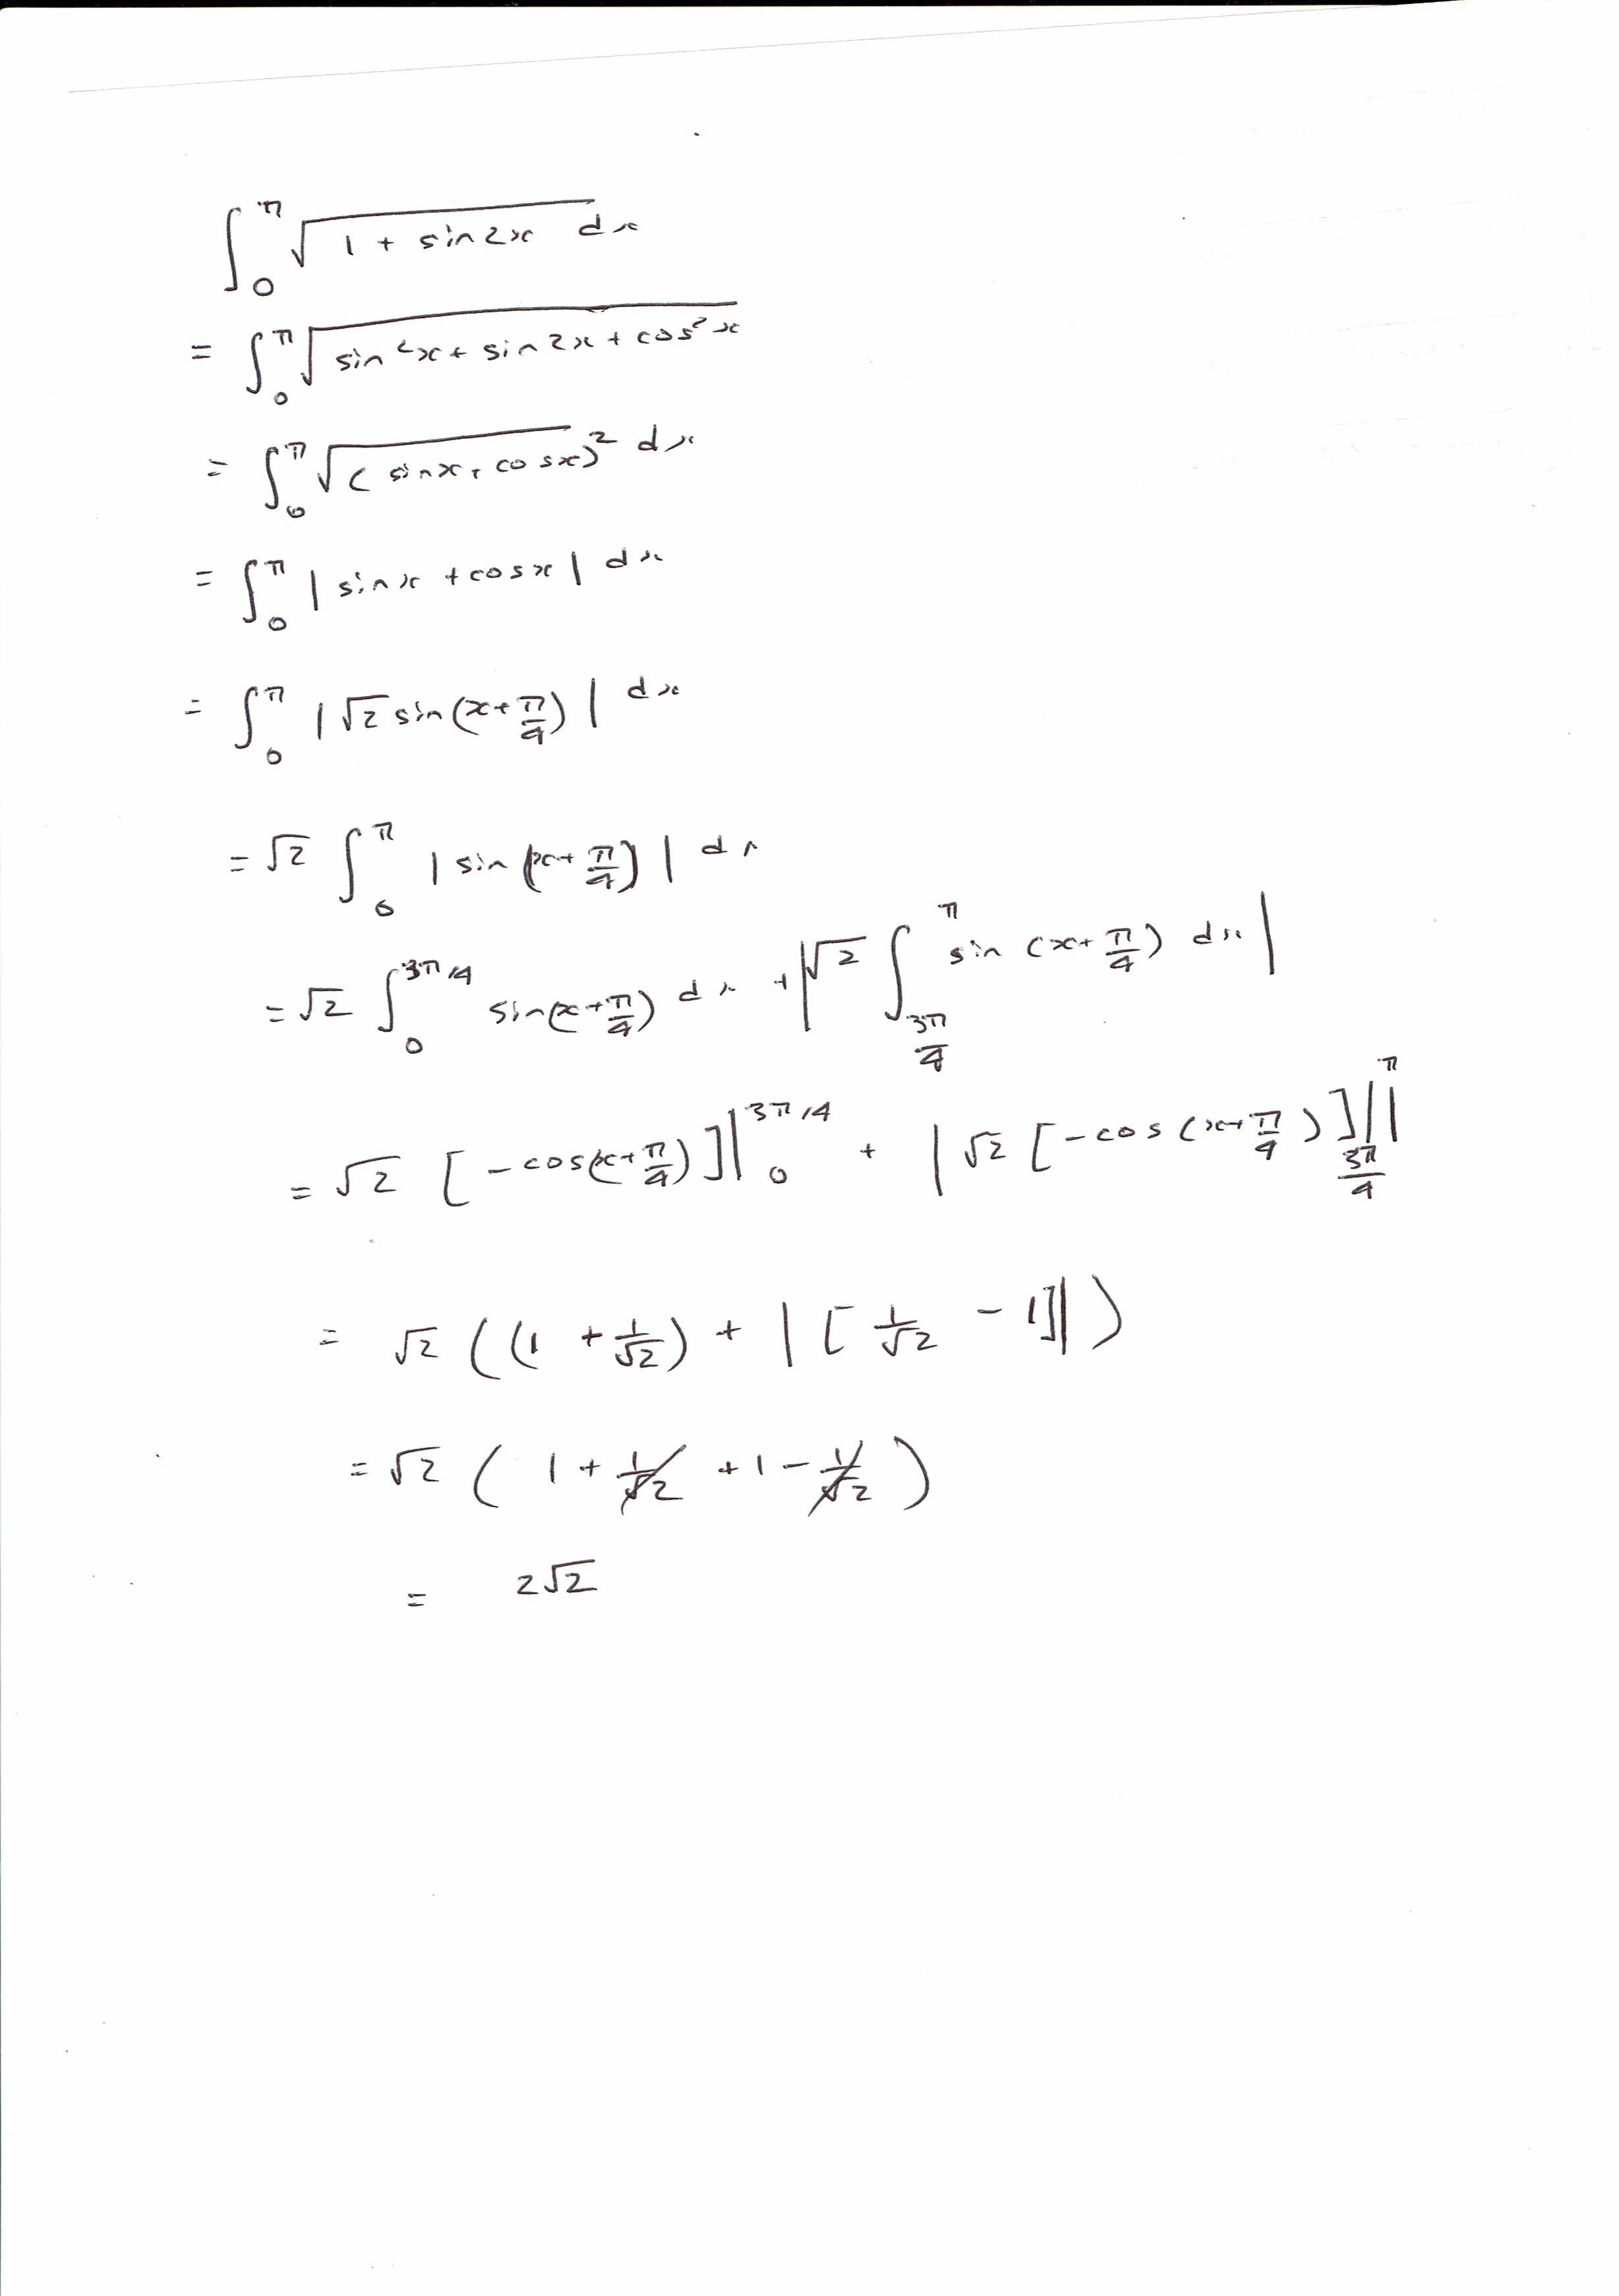 ∫₀^π √(1 + sin2x) dx
= ∫₀^π √(sin²x + sin2x + cos²x)
= ∫₀^π √(sinx + cosx)² dx
= ∫₀^π | sinx + cosx | dx
= ∫₀^π | √2 sin(x + π/4) | dx
= √2 ∫₀^π | sin(x + π/4) | dx
= √2 ∫₀^{3π/4} sin(x + π/4) dx + | √2 ∫_{3π/4}^π sin(x + π/4) dx |
= √2 [-cos(x + π/4)]|₀^{3π/4} + | √2 [-cos(x + π/4)]|_{3π/4}^π |
= √2 ((1 + 1/√2) + | [1/√2 - 1] |)
= √2 (1 + 1/√2 + 1 - 1/√2)
= 2√2